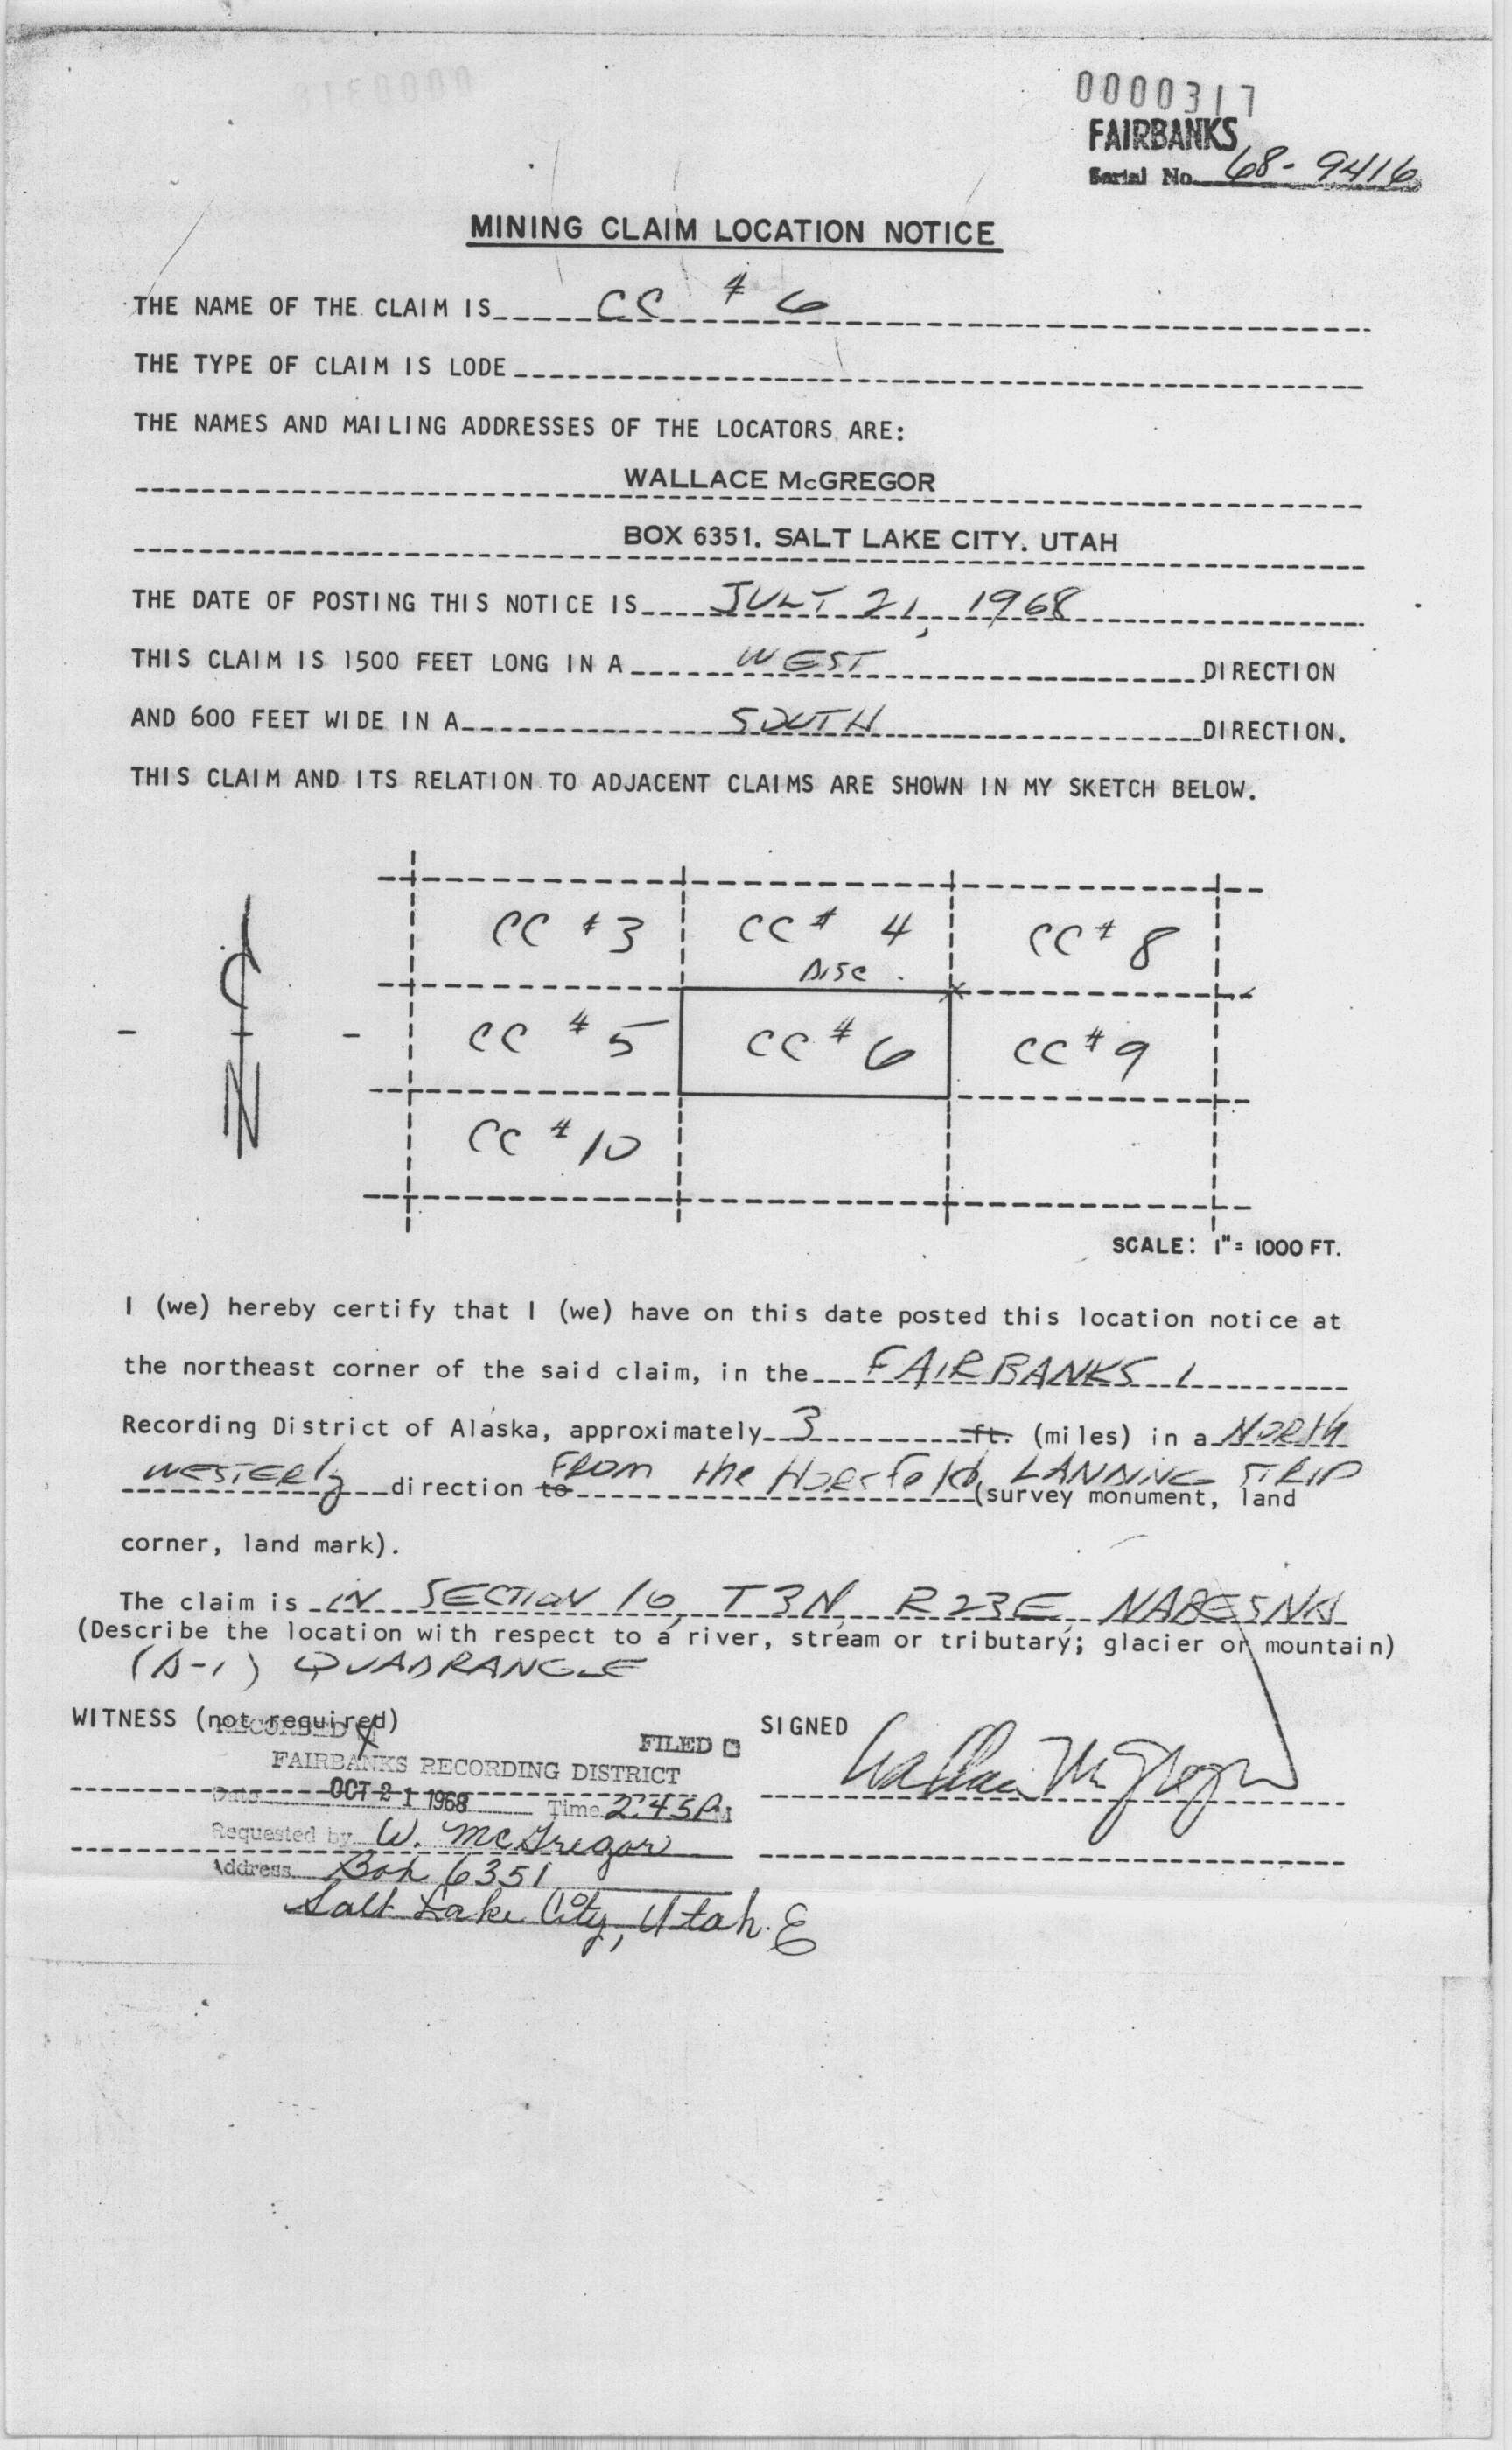 0000317
FAIRBANKS
Serial No. 68-9416
MINING CLAIM LOCATION NOTICE
THE NAME OF THE CLAIM IS CC # 6
THE TYPE OF CLAIM IS LODE
THE NAMES AND MAILING ADDRESSES OF THE LOCATORS ARE:
WALLACE McGREGOR
BOX 6351. SALT LAKE CITY. UTAH
THE DATE OF POSTING THIS NOTICE IS JULY 21, 1968
THIS CLAIM IS 1500 FEET LONG IN A WEST DIRECTION
AND 600 FEET WIDE IN A SOUTH DIRECTION.
THIS CLAIM AND ITS RELATION TO ADJACENT CLAIMS ARE SHOWN IN MY SKETCH BELOW.
CC #3 CC # 4 CC # 8
DISC.
CC # 5 CC # 6 CC # 9
N
CC # 10
SCALE: 1"= 1000 FT.
I (we) hereby certify that I (we) have on this date posted this location notice at
the northeast corner of the said claim, in the FAIRBANKS
Recording District of Alaska, approximately 3 ft. (miles) in a NORTH
WESTERly direction to From the Horsfeld LANDING STRIP (survey monument, land
corner, land mark).
The claim is IN SECTION 16, T3N, R23E, NABESNA
(Describe the location with respect to a river, stream or tributary; glacier or mountain)
(A-1) QUADRANGLE
WITNESS (not required) SIGNED Wallace McGregor
RECORDED X FILED
FAIRBANKS RECORDING DISTRICT
Date OCT 21 1968 Time 2:45 PM
Requested by W. McGregor
Address Box 6351
Salt Lake City, Utah.